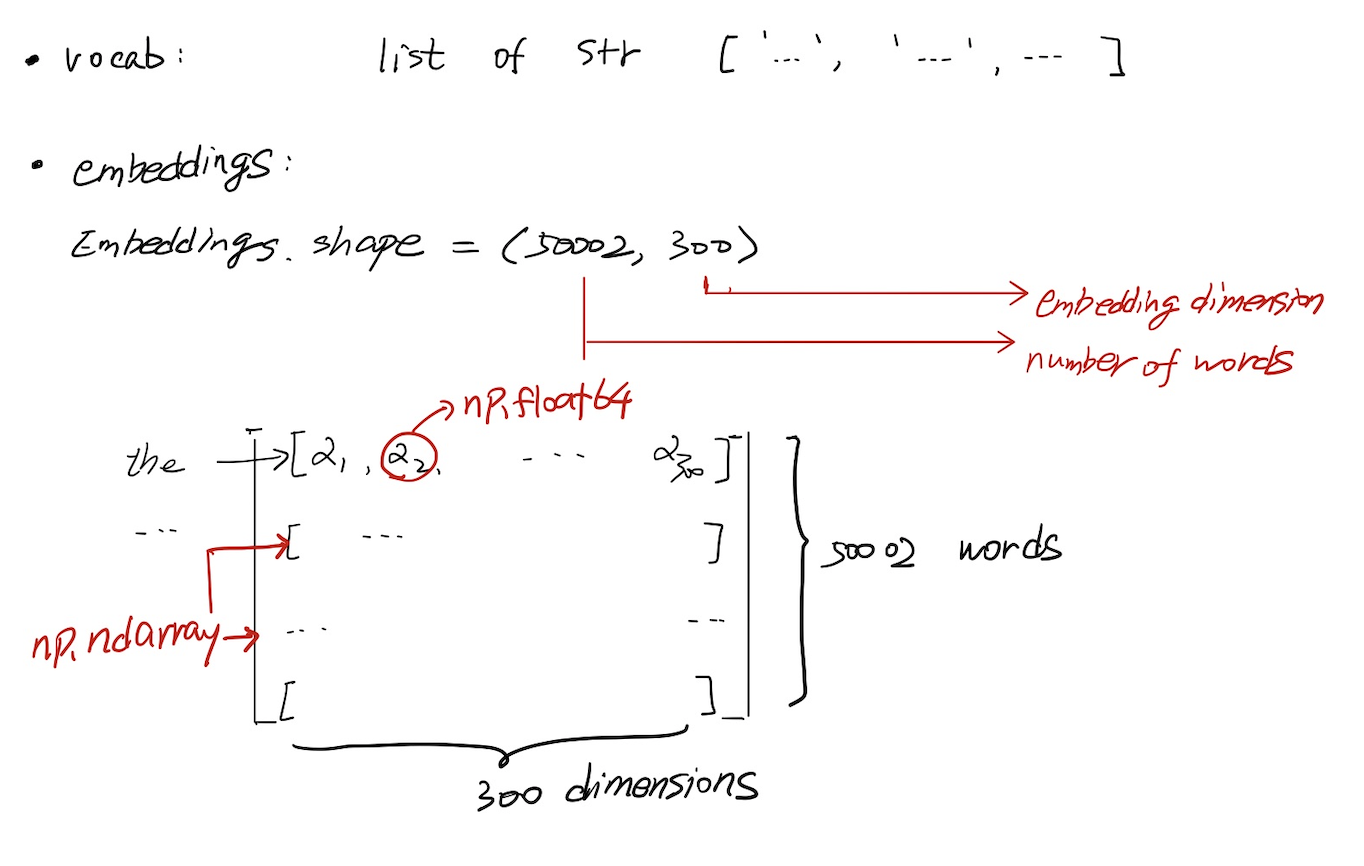 • vocab: list of str ['---', '---', ---]
• embeddings:
Embeddings.shape = (50002, 300)
embedding dimension
number of words
np.float64
the → [α₁, α₂, --- α₃₀₀]
--- [ --- ]
50002 words
np.ndarray --- ---
[ ]
300 dimensions